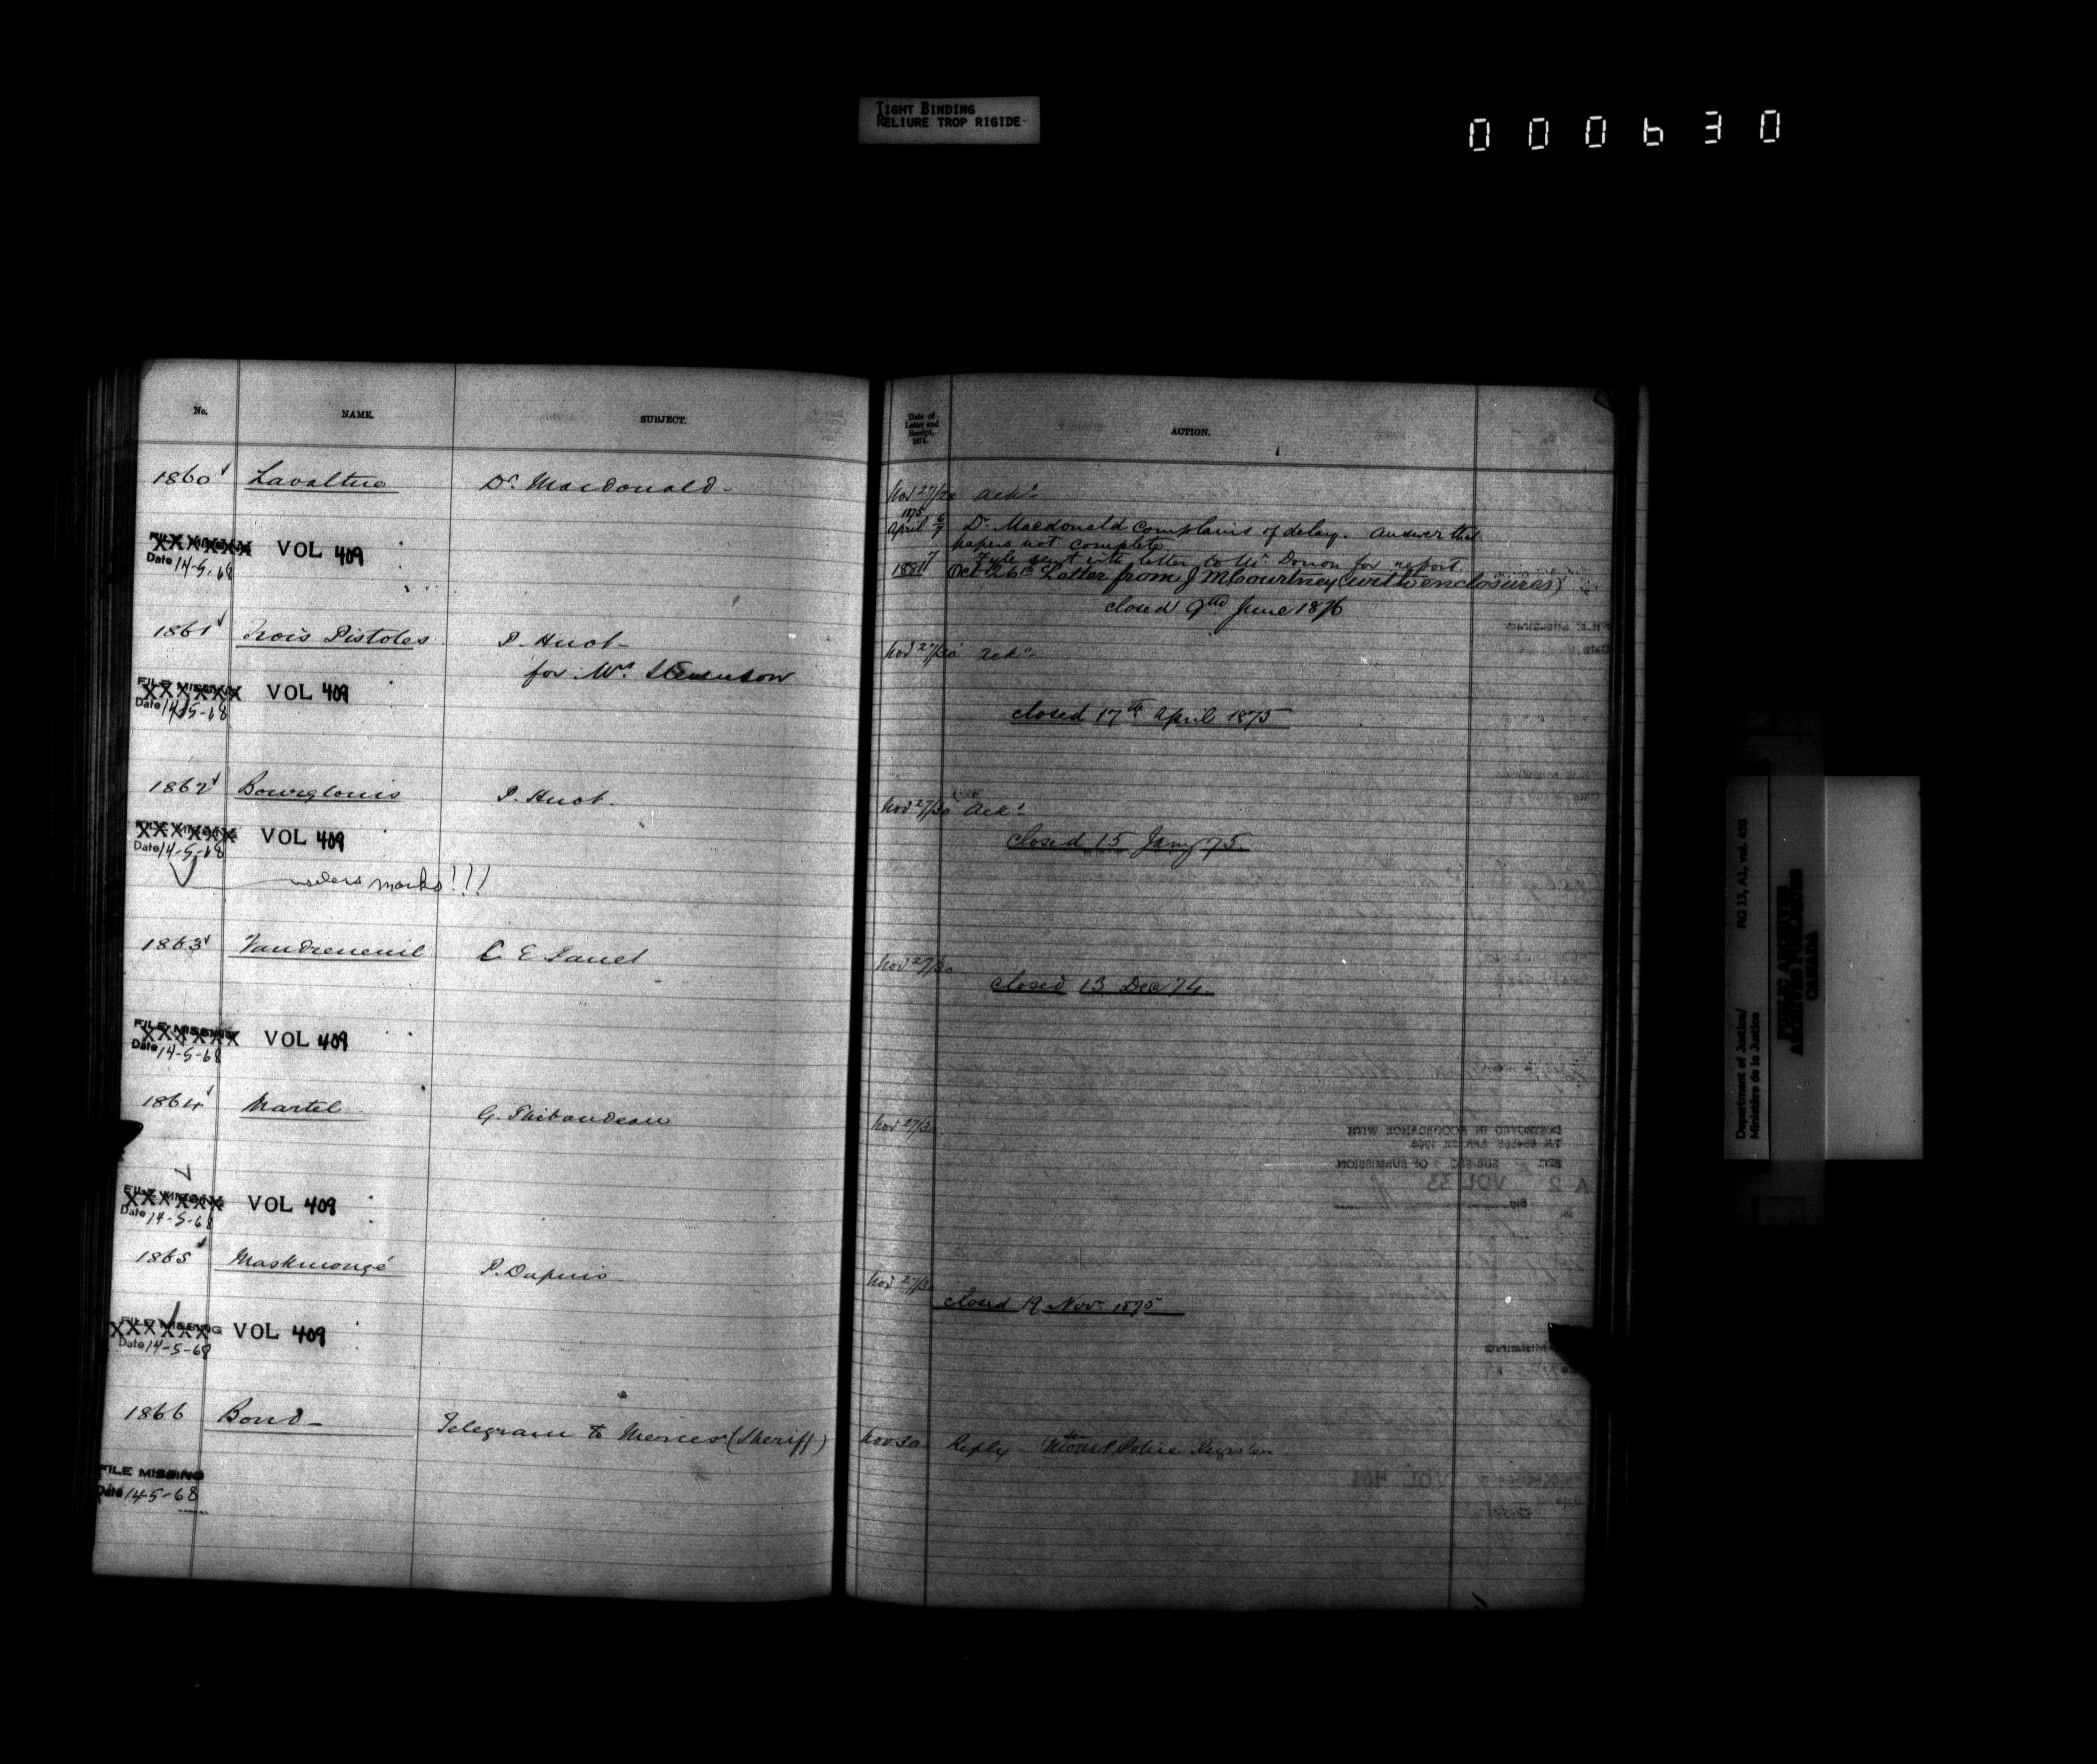 TIGHT BINDING
RELIURE TROP RIGIDE
000630
No.
NAME.
SUBJECT.
1860 Lavaltrie Dr. Macdonald-
FILE MISSING VOL 409
Date 14-5-68
1861 Trois Pistoles P. Huot-
for Wm. Stevenson
FILE MISSING VOL 409
Date 14-5-68
1862 Bourglouis P. Huot.
FILE MISSING VOL 409
Date 14-5-68
marks!!!
1863 Vaudreneuil C E Panet
FILE MISSING VOL 409
Date 14-5-68
1864 Martel G. Thibaudeau
FILE MISSING VOL 409
Date 14-5-68
1865 Maskinongé P. Dupuis
FILE MISSING VOL 409
Date 14-5-68
1866 Bond- Telegram to Mercer (Sheriff)
FILE MISSING
Date 14-5-68
Date of
Letter and
Receipt,
1874.
ACTION.
Nov 27/30 Ackd
1875
April 6/7 Dr. Macdonald complains of delay. Answer that
papers not complete
7 Fyle sent with letter to Mr Doucet for report.
1881 Oct 26th Letter from J M Courtney (with enclosures)
closed 9th June 1876
Nov 27/30 Ackd
closed 17th April 1875
Nov 27/30 Ackd
closed 15 Jany 75.
Nov 27/30
closed 13 Dec 74.
Nov 27/30
Nov 27/30
closed 19 Nov. 1875
Nov 30 Reply Mount Police Register
Department of Justice/
Ministère de la Justice
RG 13, A1, vol. 450
PUBLIC ARCHIVES
ARCHIVES PUBLIQUES
CANADA